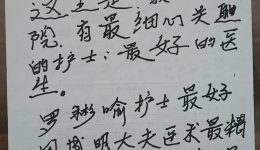 这五是
院.有最细心关照
的护士;最好的医
生。
罗彬喻护士最好
明大夫医术最精